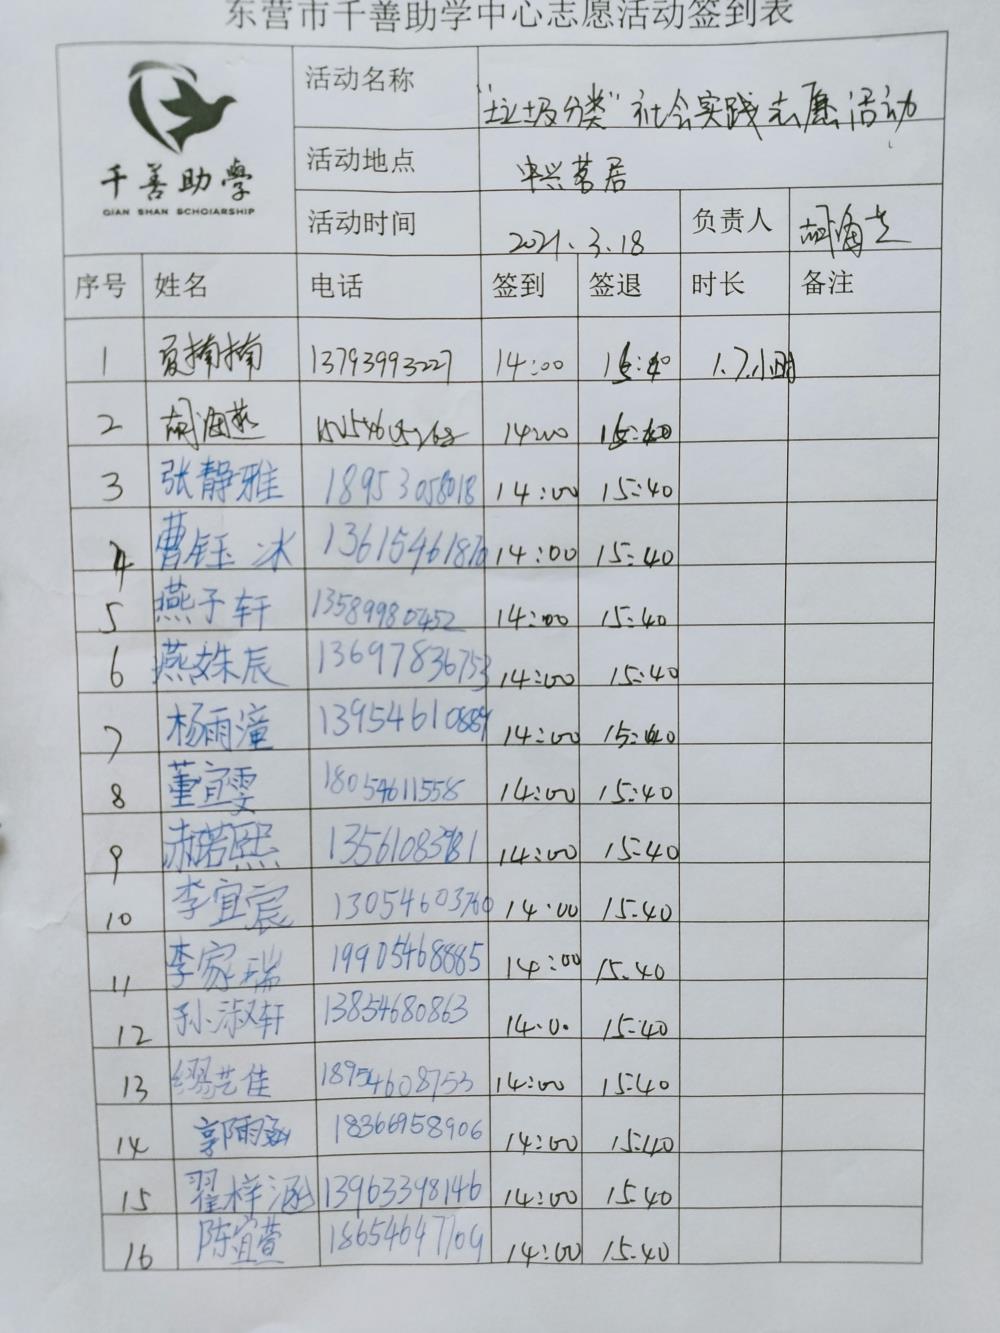 东营市千善助学中心志愿活动签到表
千善助學
QIAN SHAN SCHOlARSHIP
活动名称 "垃圾分类"社会实践志愿活动
活动地点 中兴茗居
活动时间 2021.3.18 负责人
序号 姓名 电话 签到 签退 时长 备注
1 夏楠楠 13793993227 14:00 15:40 1.7小时
2 胡海燕 14:00 15:40
3 张静雅 18953058018 14:00 15:40
4 曹钰冰 13615461870 14:00 15:40
5 燕子轩 13589980452 14:00 15:40
6 燕姝辰 13697836753 14:00 15:40
7 杨雨潼 14:00 15:40
8 董宜雯 18054611558 14:00 15:40
9 赫若熙 14:00 15:40
10 李宜宸 13054603760 14:00 15:40
11 李家瑞 19905468885 14:00 15.40
12 孙淑轩 13854680863 14.0. 15:40
13 缪艺佳 18954608753 14:00 15:40
14 郭雨涵 18366958906 14:00 15:40
15 翟梓涵 13963398146 14:00 15.40
16 陈宜萱 18654647709 14:00 15.40